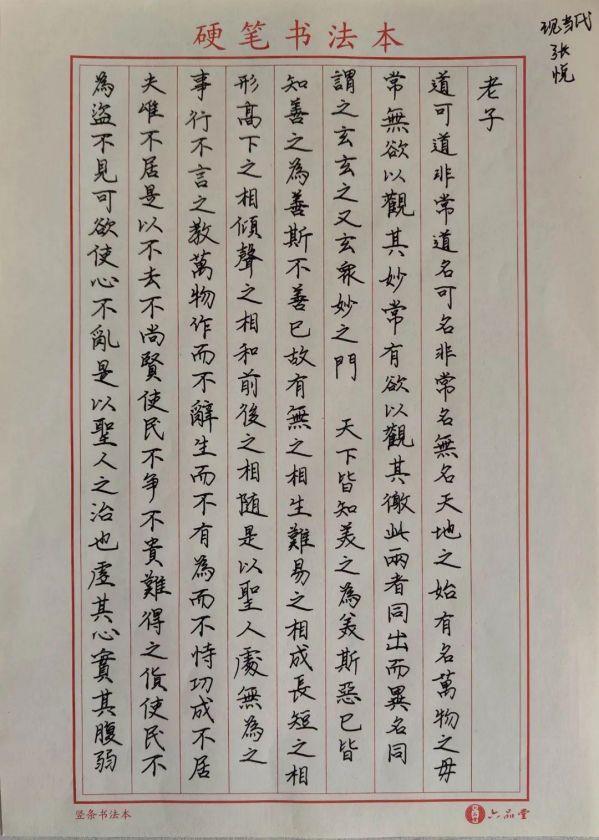 硬笔书法本
现当代
张悦
老子
道可道非常道名可名非常名無名天地之始有名萬物之母
常無欲以觀其妙常有欲以觀其徼此兩者同出而異名同
謂之玄玄之又玄衆妙之門 天下皆知美之為美斯惡已皆
知善之為善斯不善已故有無之相生難易之相成長短之相
形高下之相傾聲之相和前後之相随是以聖人處無為之
事行不言之教萬物作而不辭生而不有為而不恃功成不居
夫唯不居是以不去不尚賢使民不争不貴難得之貨使民不
為盜不見可欲使心不亂是以聖人之治也虛其心實其腹弱
竖条书法本
六品堂